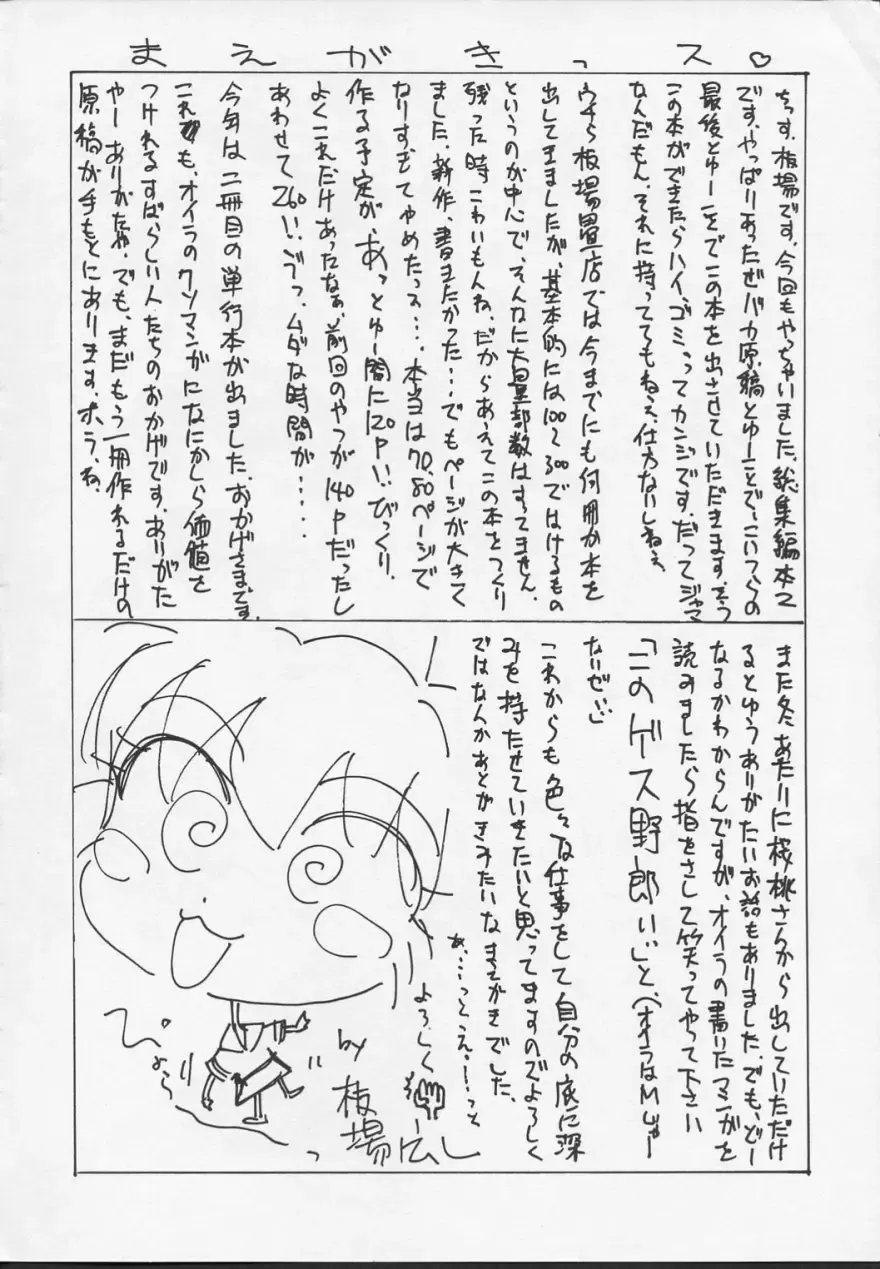 まえがきっス♡
ちっす、板場です。今回もやっちゃいました、総集編本で
です。やっぱりあったぜバカ原稿とゆーことで、こいつらの
最後とゆーことでこの本を出させていただきます。そう
この本ができたらハイ、ゴミってカンジです。だってジャマ
なんだもん。それに持っててもねぇ、仕方ないしねぇ。
ウチら板場畳店では今までにも何冊か本を
出してきましたが、基本的には100〜300ではけるもの
というのが中心で、そんなに大量部数はすってません。
残った時こわいもんね。だからあえてこの本をつくり
ました。新作、書きたかった…でもページが大きく
なりすぎてやめたっス…。本当は70、80ページで
作る予定が、あっとゆー間に120P!!びっくり。
よくこれだけあったなぁ、前回のやつが140Pだったし
あわせて260!!、ムダな時間が・・・・・
今年は二冊目の単行本が出ました。おかげさまです。
これも、オイラのクソマンガになにかしら価値を
つけれるすばらしい人たちのおかげです。ありがた
やーありがたや。でも、まだもう一冊作れるだけの
原稿が手もとにあります。ホラ、ね。
また冬あたりに桜桃さんから出していただけ
るとゆうありがたいお話もありました。でも、どー
なるかわからんですが、オイラの書いたマンガを
読みましたら指をさして笑ってやって下さい
「このゲース野郎!!」と(オイラはMじゃー
ないぜ!!)
これからも色々な仕事をして自分の底に深
みを持たせていきたいと思ってますのでよろしく
ではなんかあとがきみたいなまえがきでした。
ぁ、…っとぇ…っと
よろしく
by 板場広し